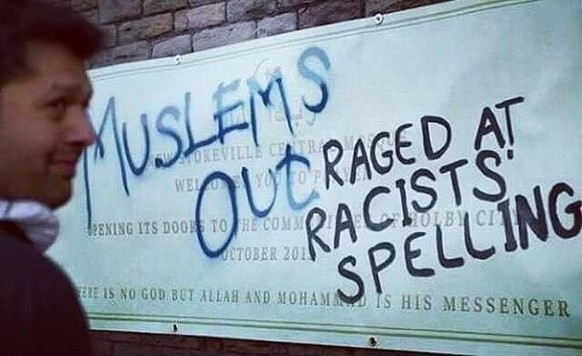 MUSLEMS
OUT
RAGED AT
RACISTS'
SPELLING
CENTRAL
YOU TO
PENING ITS DOORS TO THE COMM OF HOLBY CITY
OCTOBER 201
ERE IS NO GOD BUT ALLAH AND MOHAMMAD IS HIS MESSENGER